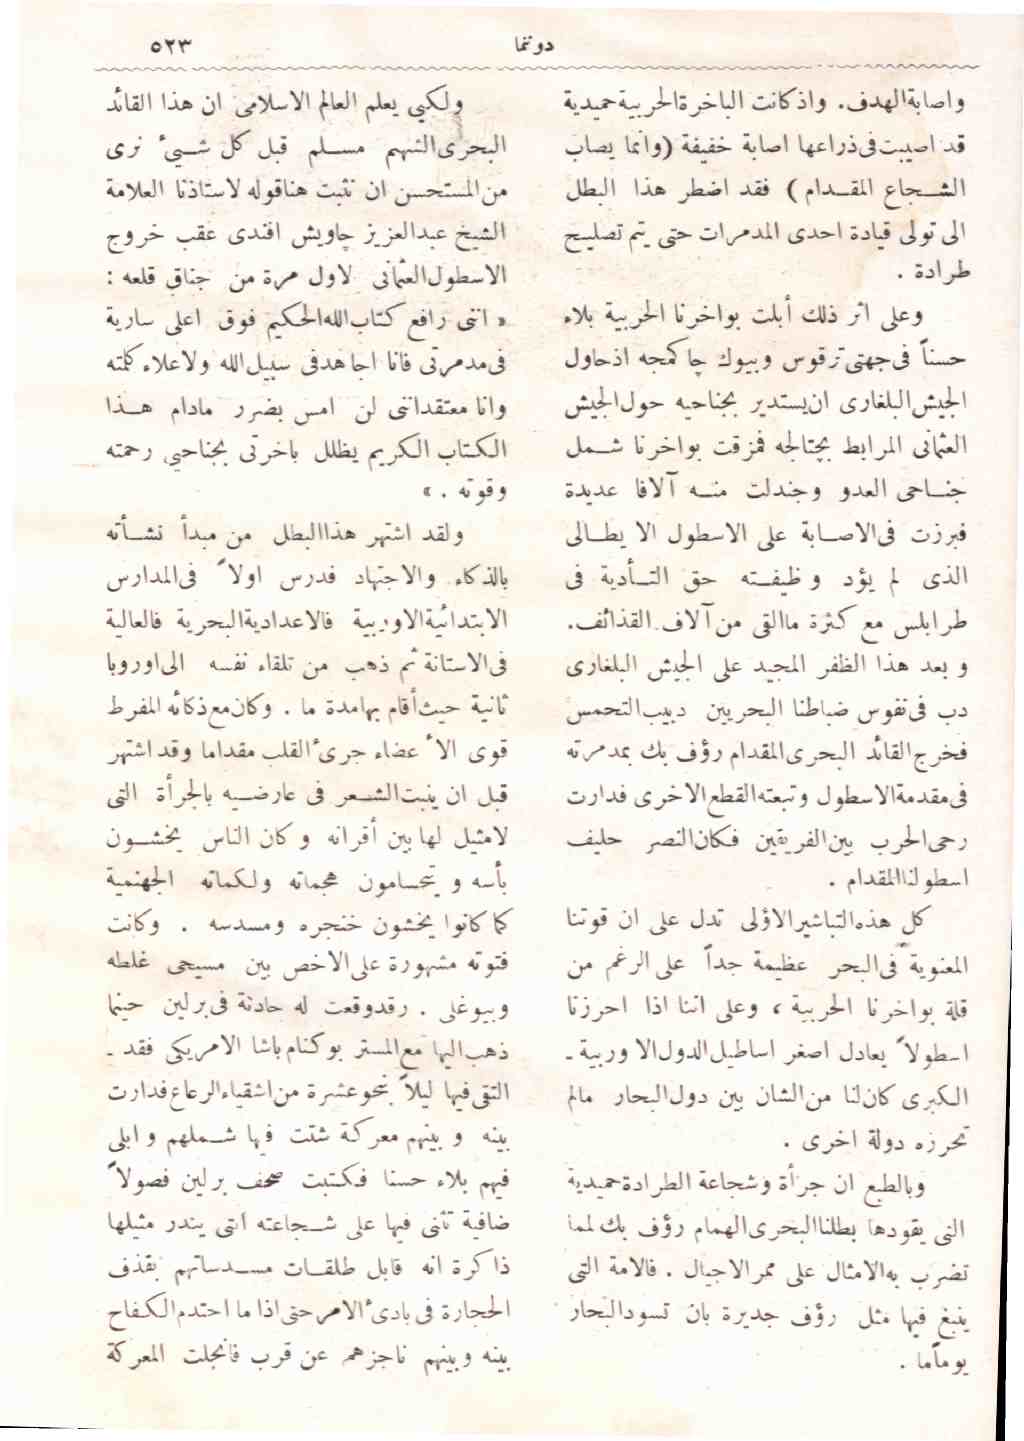 دوننما
٥٢٣
واصابة الهدف. واذ كانت الباخرة الحربية حميدية
قد اصيبت فى ذراعها اصابة خفيفة (وانما يصاب
الشجاع المقدام) فقد اضطر هذا البطل
الى تولى قيادة احدى المدمرات حتى يتم تصليح
طرادة .
وعلى اثر ذلك أبلت بواخرنا الحربية بلاء
حسناً فى جهتى ترقوس وبيوك چاكمجه اذ حاول
الجيش البلغارى ان يستدير بجناحيه حول الجيش
العثمانى المرابط بچتالجه فمزقت بواخرنا شمل
جناحى العدو وجندلت منه آلافا عديدة
فبرزت فى الاصابة على الاسطول الايطالى
الذى لم يؤد وظيفته حق التأدية فى
طرابلس مع كثرة ما القى من آلاف القذائف.
وبعد هذا الظفر المجيد على الجيش البلغارى
دب فى نفوس ضباطنا البحريين دبيب التحمس
فخرج القائد البحرى المقدام رؤف بك بمدمرته
فى مقدمة الاسطول وتبعته القطع الاخرى فدارت
رحى الحرب بين الفريقين فكان النصر حليف
اسطولنا المقدام .
كل هذه التباشير الاؤلى تدل على ان قوتنا
المعنوية فى البحر عظيمة جداً على الرغم من
قلة بواخرنا الحربية ، وعلى اننا اذا احرزنا
اسطولاً يعادل اصغر اساطيل الدول الاوربية -
الكبرى كان لنا من الشان بين دول البحار مالم
تحرزه دولة اخرى .
وبالطبع ان جرأة وشجاعة الطرادة حميدية
التى يقودها بطلنا البحرى الهمام رؤف بك لمما
تضرب به الامثال على ممر الاجيال . فالامة التى
ينبغ فيها مثل رؤف جديرة بان تسود البحار
يوماً ما .
ولكيي يعلم العالم الاسلامى ان هذا القائد
البحرى الشهم مسلم قبل كل شيئ نرى
من المستحسن ان نثبت هنا قوله لاستاذنا العلامة
الشيخ عبدالعزيز چاويش افندى عقب خروج
الاسطول العثمانى لاول مرة من جناق قلعه :
« اننى رافع كتاب الله الحكيم فوق اعلى سارية
فى مدمرتى فانا اجاهد فى سبيل الله ولاعلاء كلمته
وانا معتقد اننى لن امس بضرر مادام هذا
الكتاب الكريم يظلل باخرتى بجناحيى رحمته
وقوته . »
ولقد اشتهر هذا البطل من مبدأ نشأته
بالذكاء والاجتهاد فدرس اولاً فى المدارس
الابتدائية الاوربية فالاعدادية البحرية فالعالية
فى الاستانة ثم ذهب من تلقاء نفسه الى اوروبا
ثانية حيث أقام بها مدة ما . وكان مع ذكائه المفرط
قوى الأعضاء جرئ القلب مقداما وقد اشتهر
قبل ان ينبت الشعر فى عارضيه بالجرأة التى
لا مثيل لها بين أقرانه وكان الناس يخشون
بأسه ويتحسامون هجماته ولكماته الجهنمية
كما كانوا يخشون خنجره ومسدسه . وكانت
فتوته مشهورة على الاخص بين مسيحى غلطه
وبيوغلى . رقد وقعت له حادثة فى برلين حينما
ذهب اليها مع المستر بوكنام باشا الامريكى فقد -
التقى فيها ليلاً بنحو عشرة من اشقياء الرعاع فدارت
بينه وبينهم معركة شتت فيها شملهم وابلى
فيهم بلاء حسنا فكتبت صحف برلين فصولاً
ضافية تثنى فيها على شجاعته التى يندر مثيلها
ذاكرة انه قابل طلقات مسدساتهم بقذف
الحجارة فى بادئ الامر حتى اذا ما احتدم الكفاح
بينه وبينهم ناجزهم عن قرب فانجلت المعركة